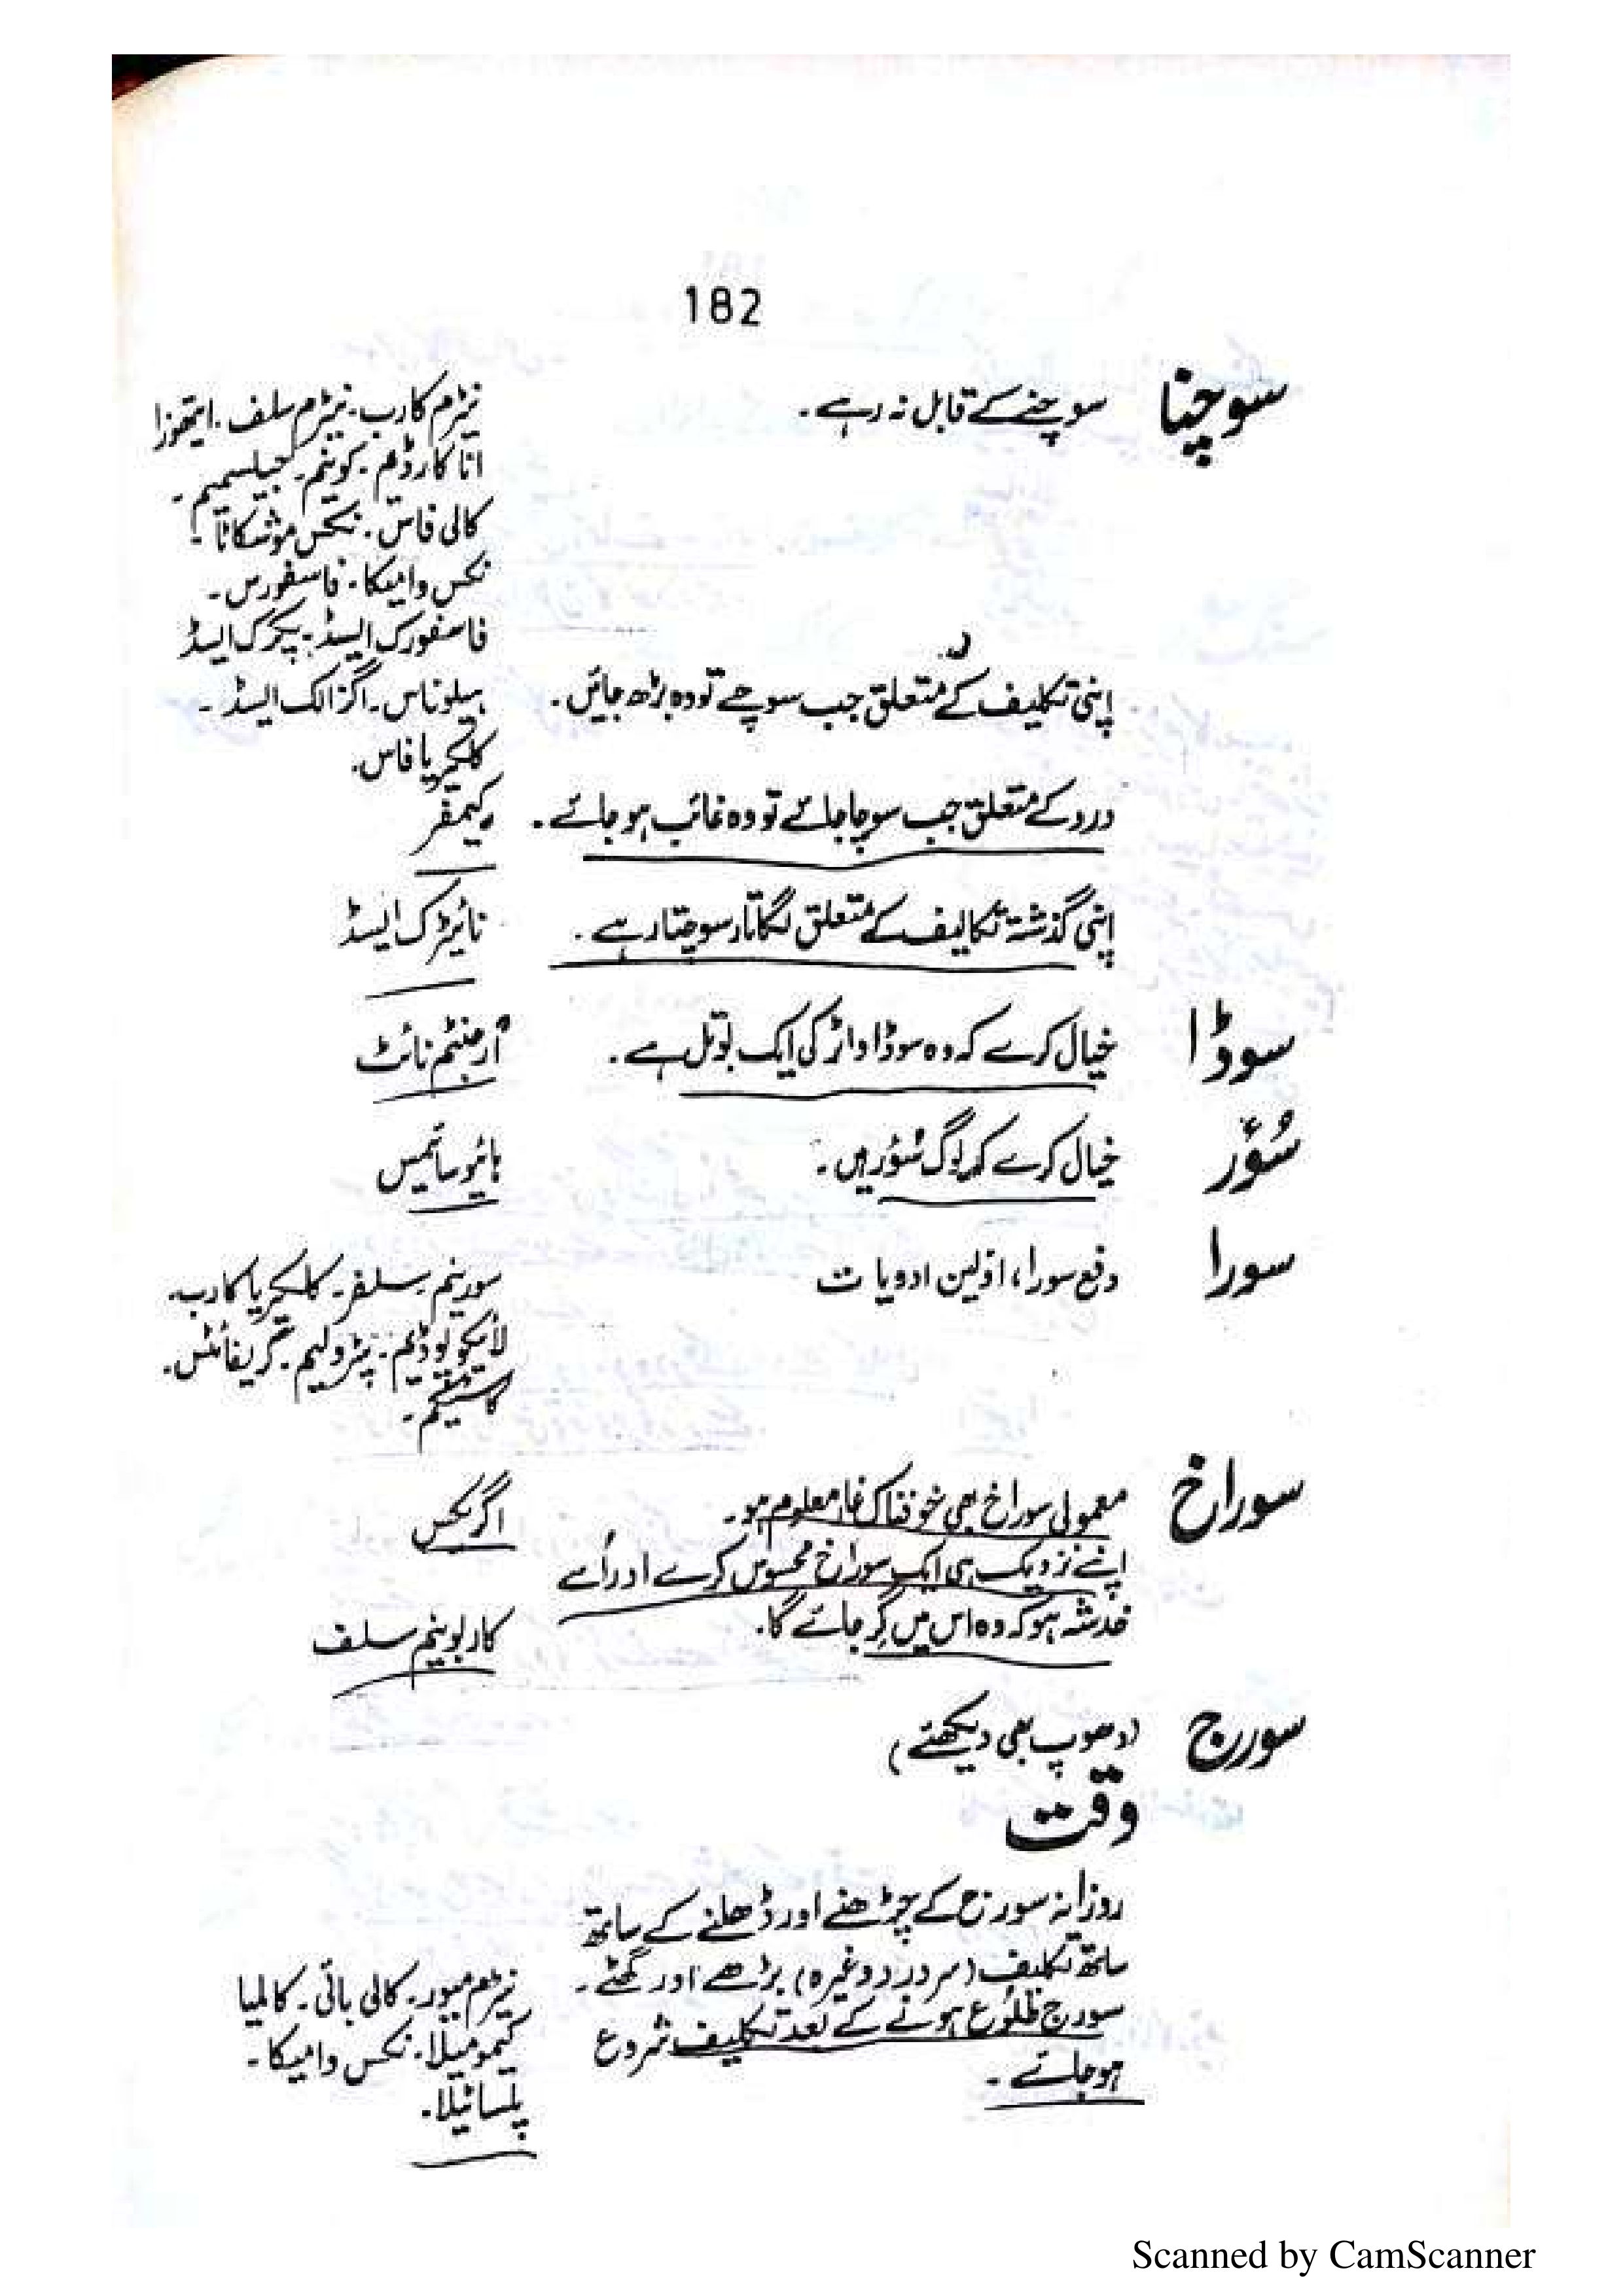 182
سوچنا
سوچنے کے قابل نہ رہے۔
نیٹرم کارب۔ نیٹرم سلف۔ ایتھوزا
انا کارڈیم۔ کونیم۔ جیلسیمیم۔
کالی فاس۔ نکس موشکاٹا۔
نکس وامیکا۔ فاسفورس۔
فاسفورک ایسڈ۔ پکرک ایسڈ
اپنی تکلیف کے متعلق جب سوچے تو وہ بڑھ جائیں۔
ہیلوناس۔ اگزالک ایسڈ۔
کلکیریا فاس۔
درد کے متعلق جب سوچا جائے تو وہ غائب ہو جائے۔
کیمفر
اپنی گذشتہ تکالیف کے متعلق لگاتار سوچتا رہے۔
نائیٹرک ایسڈ
سوڈا
خیال کرے کہ وہ سوڈا واٹر کی ایک بوتل ہے۔
ارجنٹم نائٹ
سُؤر
خیال کرے کہ لوگ سُؤر ہیں۔
ہائیوسائمس
سورا
دفع سورا، اوّلین ادویات
سورینم۔ سلفر۔ کلکیریا کارب۔
لائیکوپوڈیم۔ پٹرولیم۔ گریفائٹس۔
کاسٹیکم۔
سوراخ
معمولی سوراخ بھی خوفناک غار معلوم ہو۔
اگریکس
اپنے نزدیک ہی ایک سوراخ محسوس کرے اور اُسے
خدشہ ہو کہ وہ اس میں گِر جائے گا۔
کاربونیم سلف
سورج
(دھوپ بھی دیکھئے)
وقت
روزانہ سورج کے چڑھنے اور ڈھلنے کے ساتھ
ساتھ تکلیف (سر درد وغیرہ) بڑھے اور گھٹے۔
نیٹرم میور۔ کالی بائی۔ کالمیا
سورج طلوع ہونے کے بعد تکلیف شروع
ہو جائے۔
کیمومیلا۔ نکس وامیکا۔
پلساٹیلا۔
Scanned by CamScanner